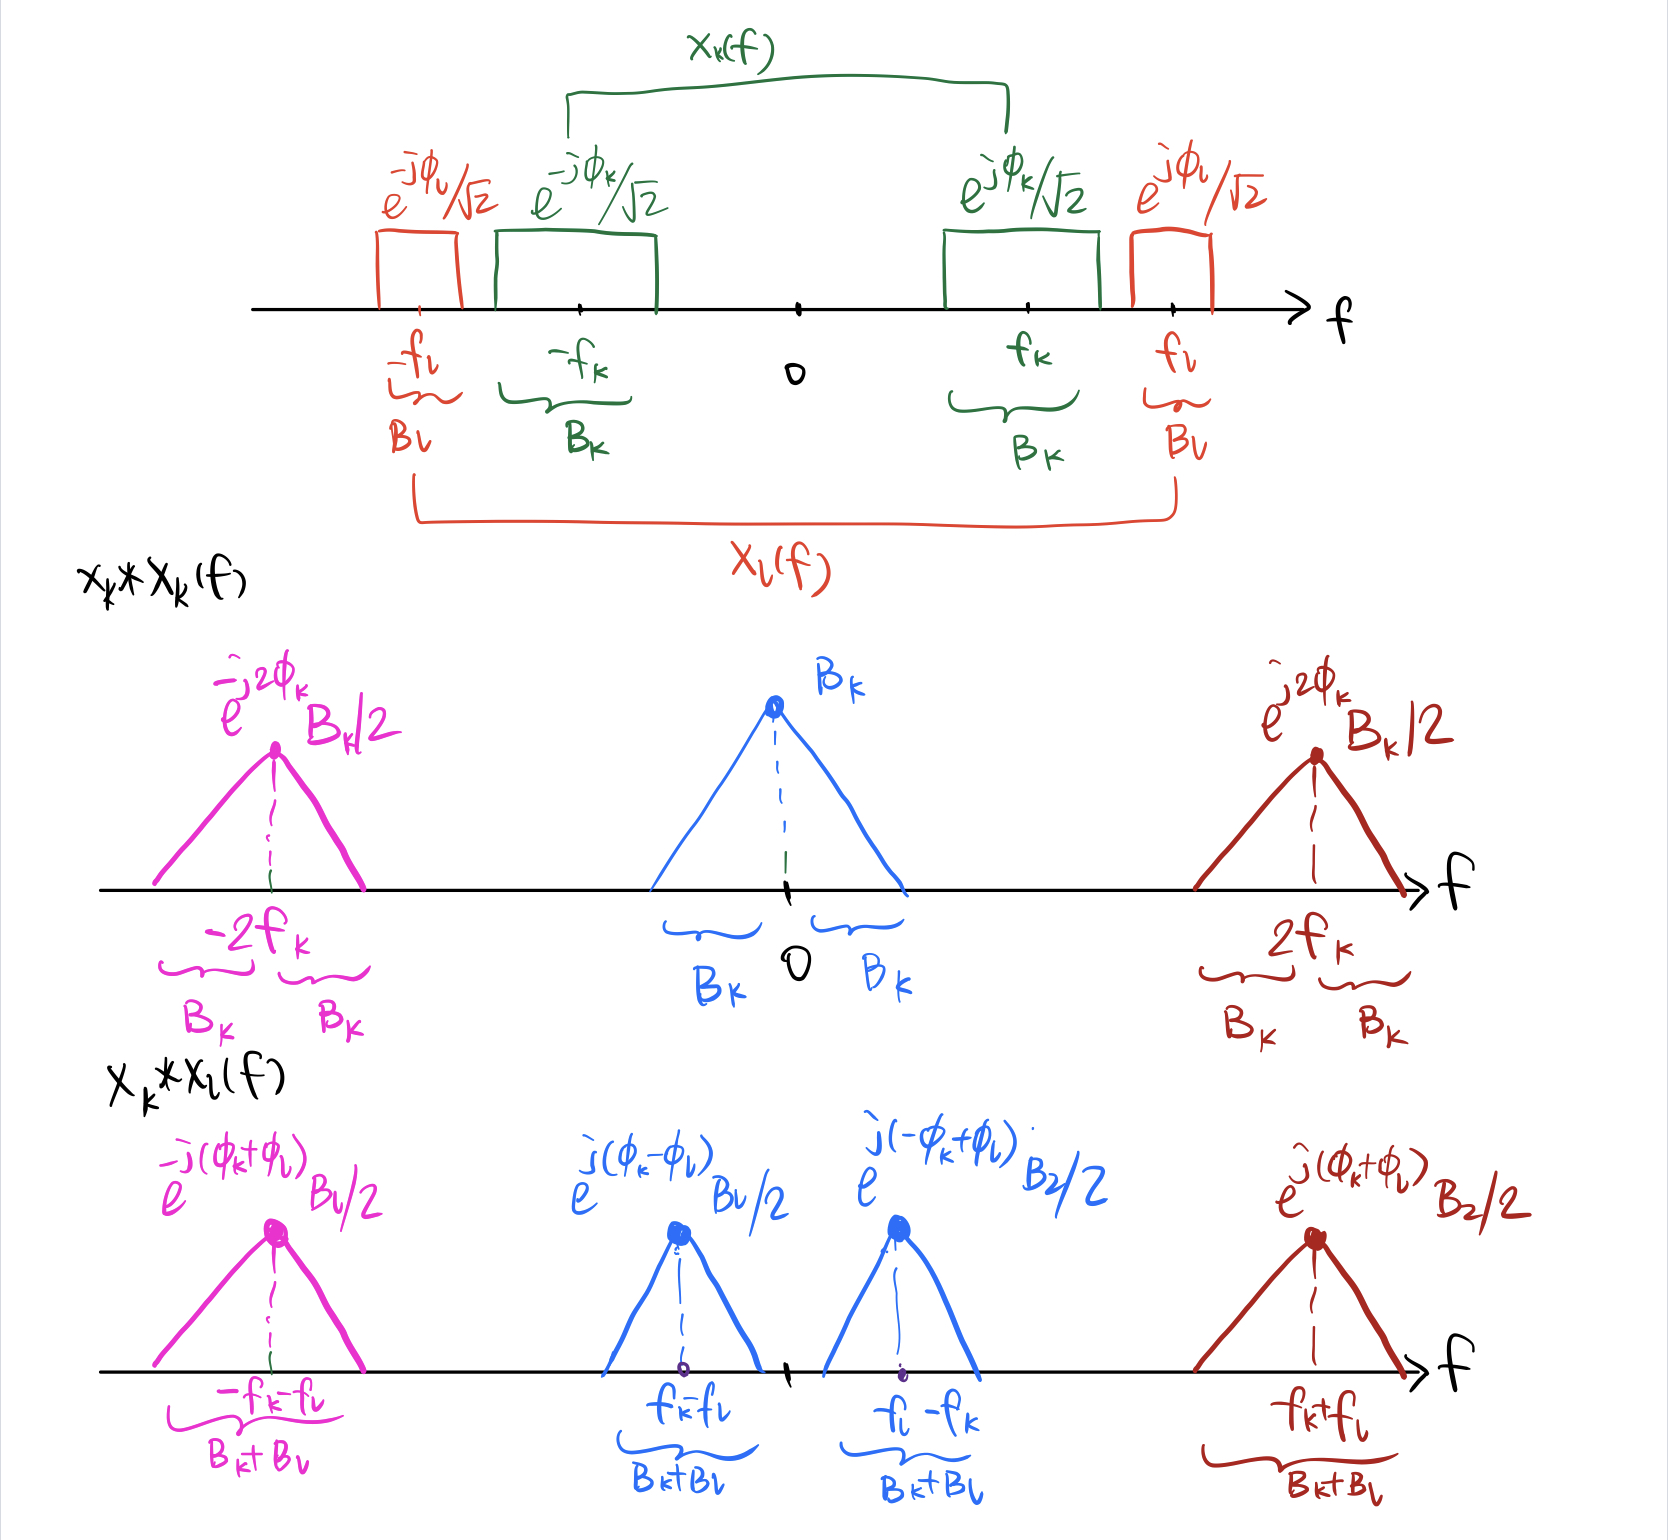 X_k(f)
e^{-jϕ_l}/√2 e^{-jϕ_k}/√2 e^{jϕ_k}/√2 e^{jϕ_l}/√2
f
-f_l -f_k 0 f_k f_l
B_l B_k B_k B_l
X_l(f)
X_k*X_k(f)
e^{-j2ϕ_k} B_k/2 B_k e^{j2ϕ_k} B_k/2
f
-2f_k 0 2f_k
B_k B_k B_k B_k B_k B_k
X_k*X_l(f)
e^{-j(ϕ_k+ϕ_l)} B_l/2 e^{j(ϕ_k-ϕ_l)} B_l/2 e^{j(-ϕ_k+ϕ_l)} B_2/2 e^{j(ϕ_k+ϕ_l)} B_2/2
f
-f_k-f_l f_k-f_l -f_l-f_k f_k+f_l
B_k+B_l B_k+B_l B_k+B_l B_k+B_l